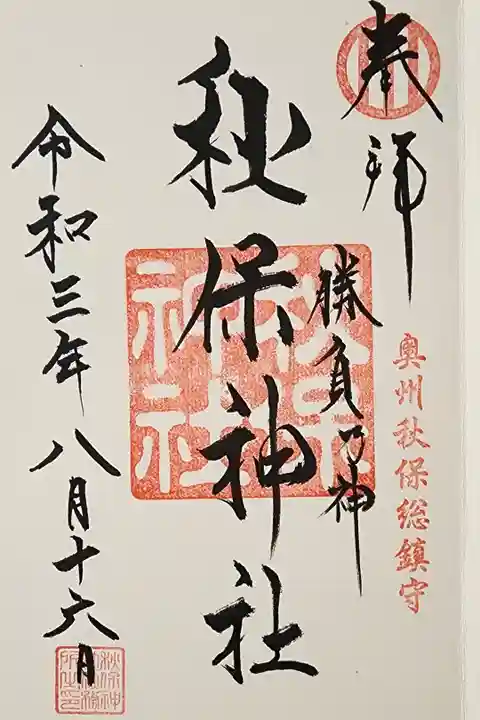 奉拝
奥州秋保総鎮守
勝負乃神
秋保神社
秋保
神社
令和三年八月十六日